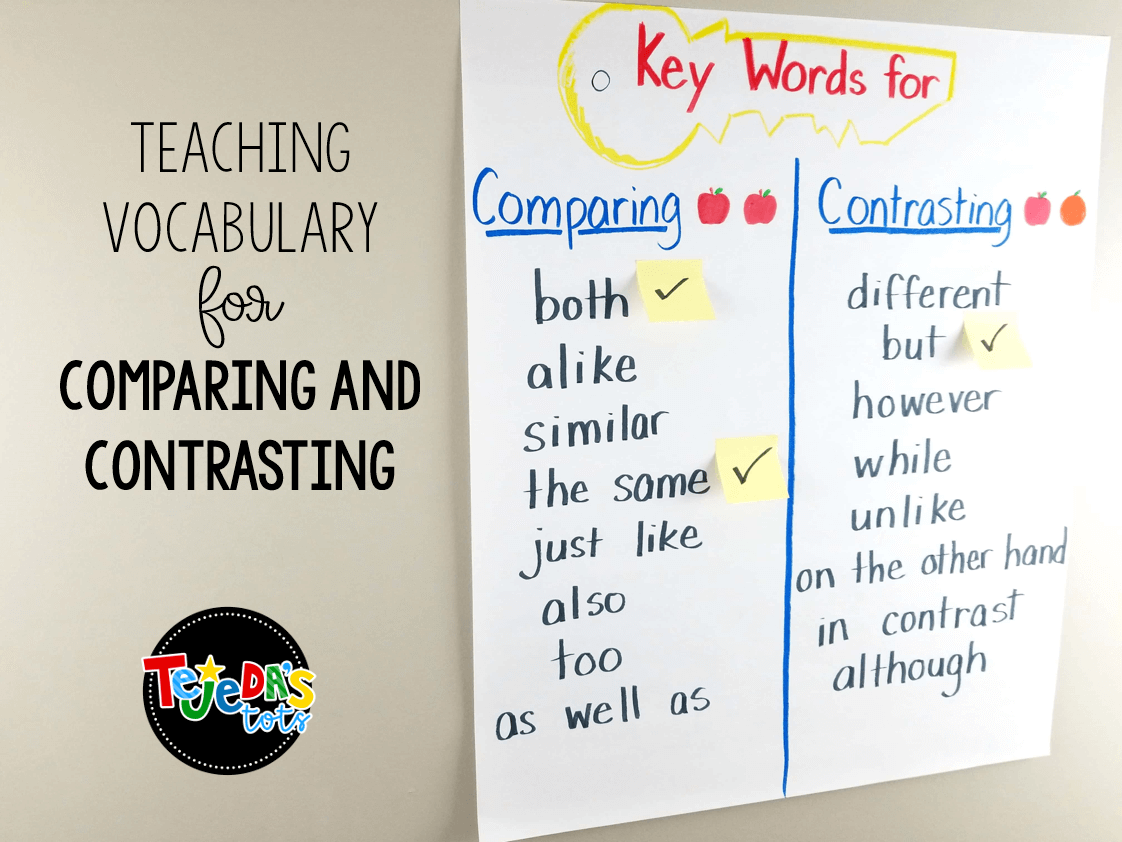 TEACHING
VOCABULARY
for
COMPARING AND
CONTRASTING
TEJEDA'S
tots
Key Words for
Comparing
both
alike
similar
the same
just like
also
too
as well as
Contrasting
different
but
however
while
unlike
on the other hand
in contrast
although